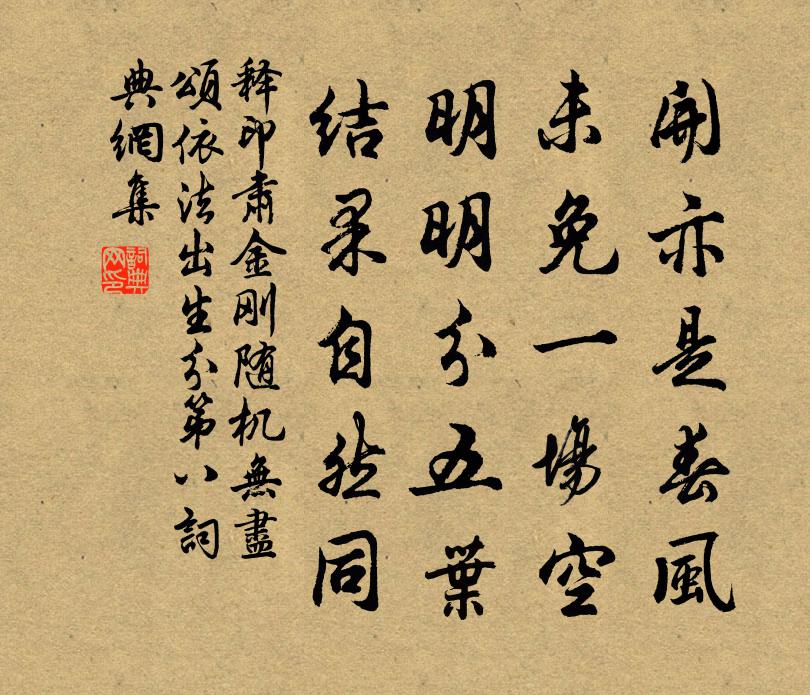 開亦是春風
未免一場空
明明分五葉
结果自然同
释印肃金刚随机無盡
頌依法出生分第八詞
典網集
詞典網印